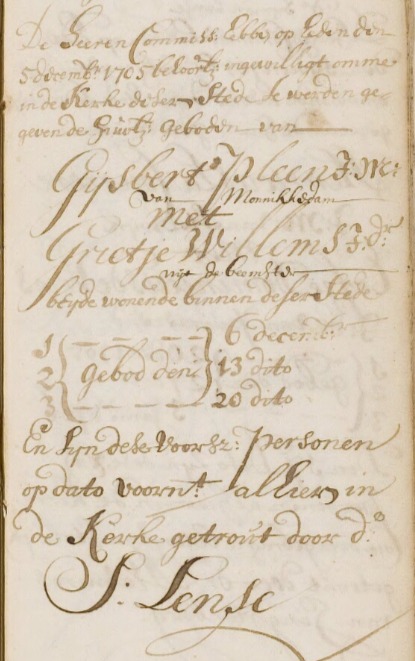 De Heeren Commiss: Ebbe op heden den
5 decemb:r 1705 behoorl: ingewilligt omme
in de Kerke deser Stede te werden ge-
geven de huwl: Geboden van
Gijsbert Pleen J:M:
van Monnikkedam
met
Grietje Willems J:dr
uijt de beemster
beyde wonende binnen deser Stede
1 6 decemb:r
2 Geboden 13 dito
3 20 dito
En Sijn dese Voorsz: Personen
op dato voorn:t alhier in
de Kerke getrout door d:o
S: Lense